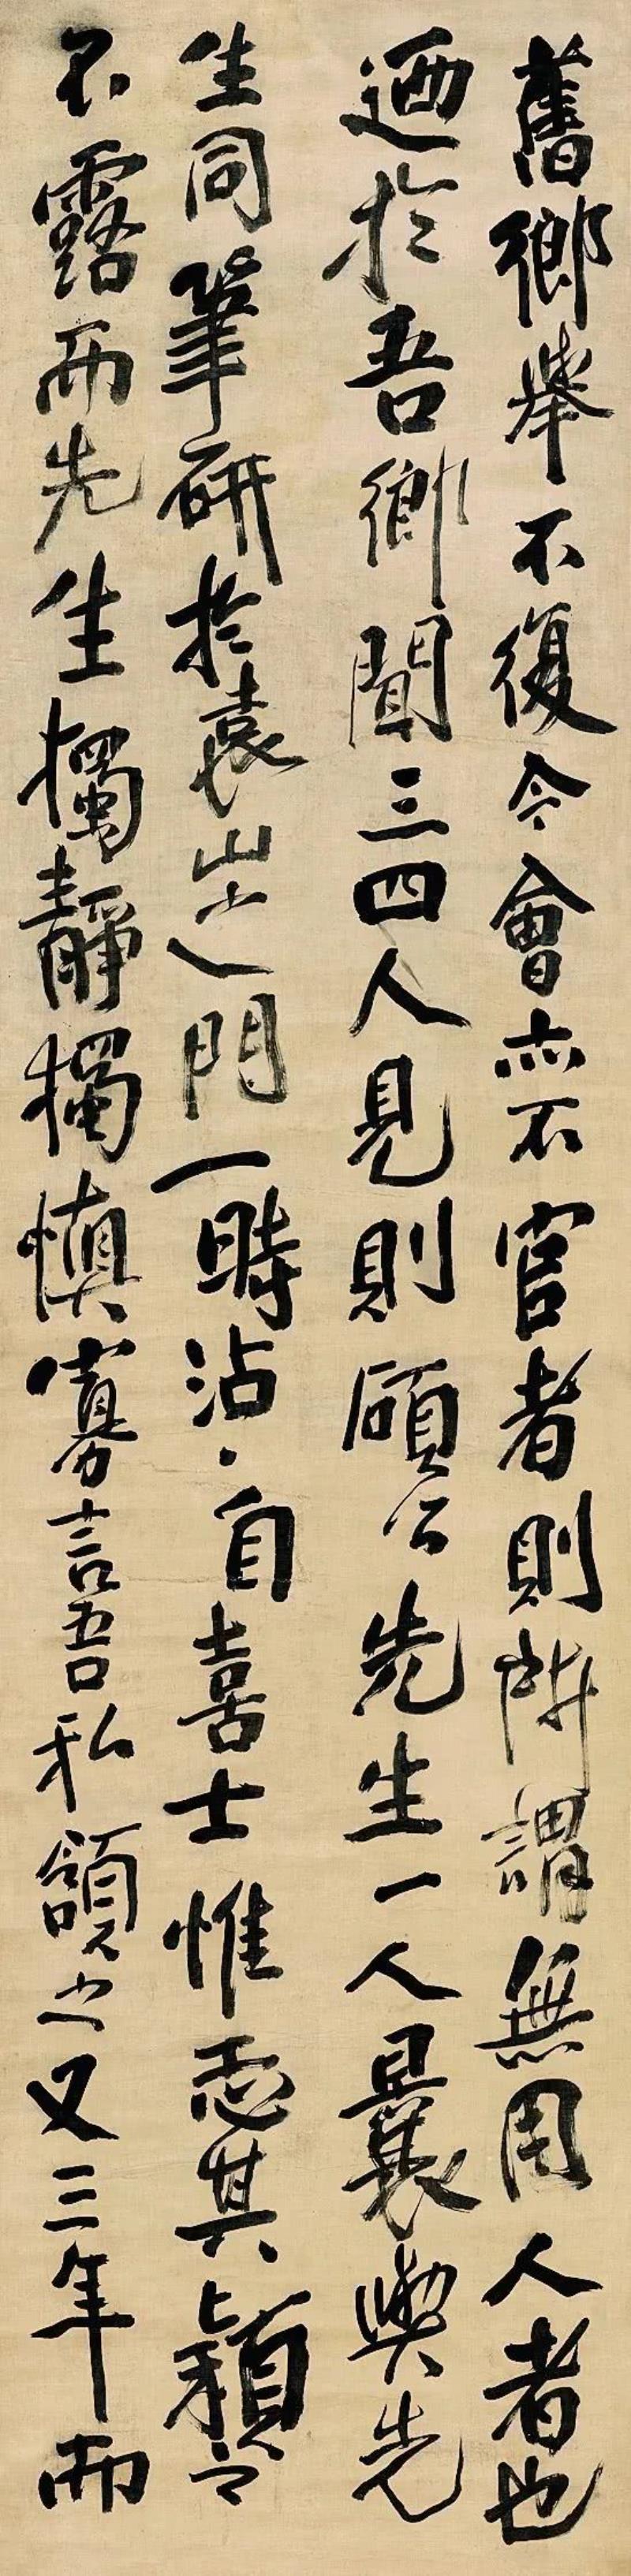 舊鄉舉不復今會亦不官者則所謂無用人者也
迺於吾鄉聞三四人見則碩公先生一人曩與先
生同筆研於袁山之門一時沾沾自喜士惟恐其穎之
不露而先生獨靜獨慎寡言吾私頷之又三年而